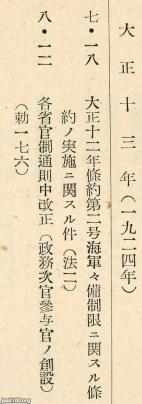 大正十三年（一九二四年）
七・一八　大正十二年條約第二号海軍々備制限ニ関スル條
約ノ実施ニ関スル件（法二）
八・一二　各省官制通則中改正（政務次官參与官ノ創設）
（勅一七六）